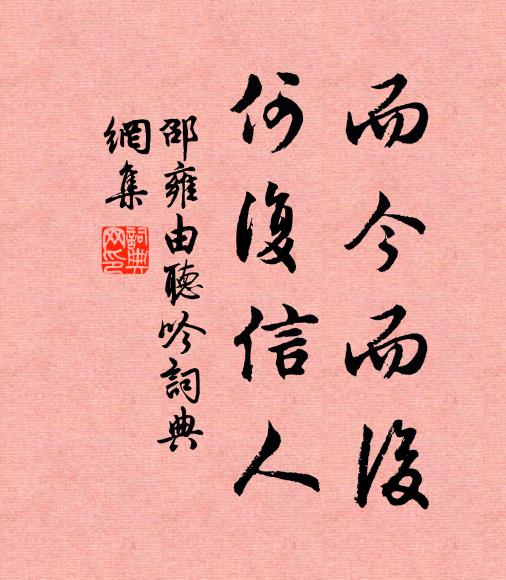 而今而後
何復信人
邵雍由聽吟詞典
網集
詞典網印